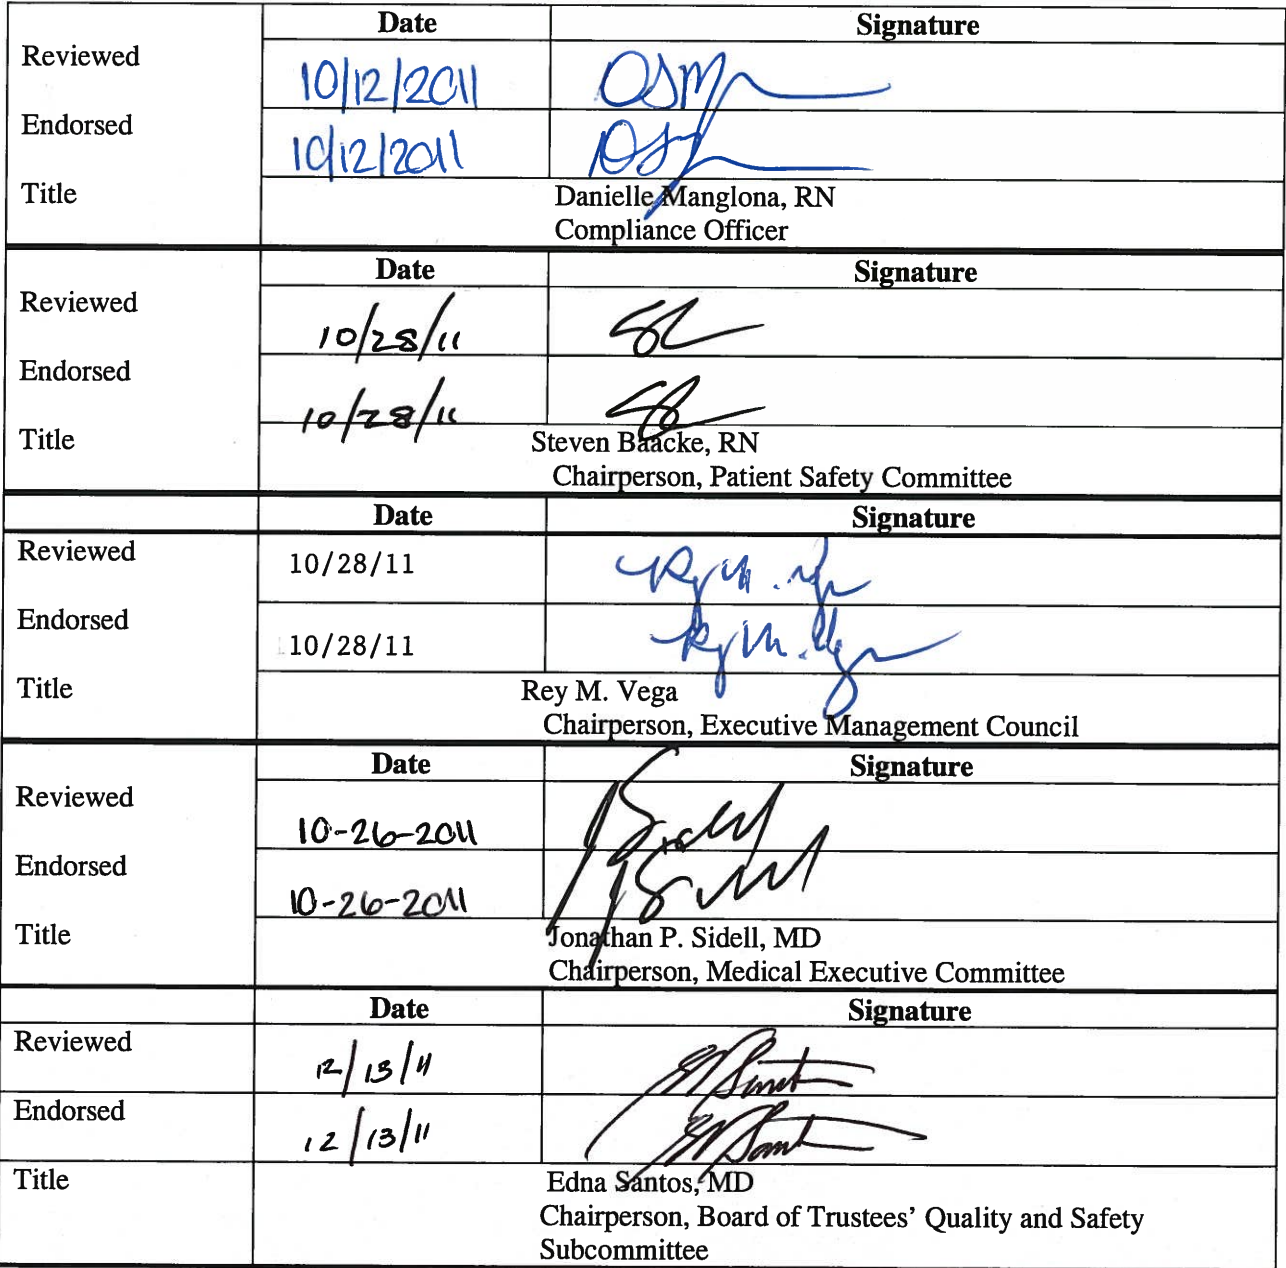 Date Signature
Reviewed 10/12/2011
Endorsed 10/12/2011
Title Danielle Manglona, RN
Compliance Officer
Date Signature
Reviewed 10/28/11
Endorsed 10/28/11
Title Steven Baacke, RN
Chairperson, Patient Safety Committee
Date Signature
Reviewed 10/28/11
Endorsed 10/28/11
Title Rey M. Vega
Chairperson, Executive Management Council
Date Signature
Reviewed 10-26-2011
Endorsed 10-26-2011
Title Jonathan P. Sidell, MD
Chairperson, Medical Executive Committee
Date Signature
Reviewed 12/13/11
Endorsed 12/13/11
Title Edna Santos, MD
Chairperson, Board of Trustees’ Quality and Safety
Subcommittee